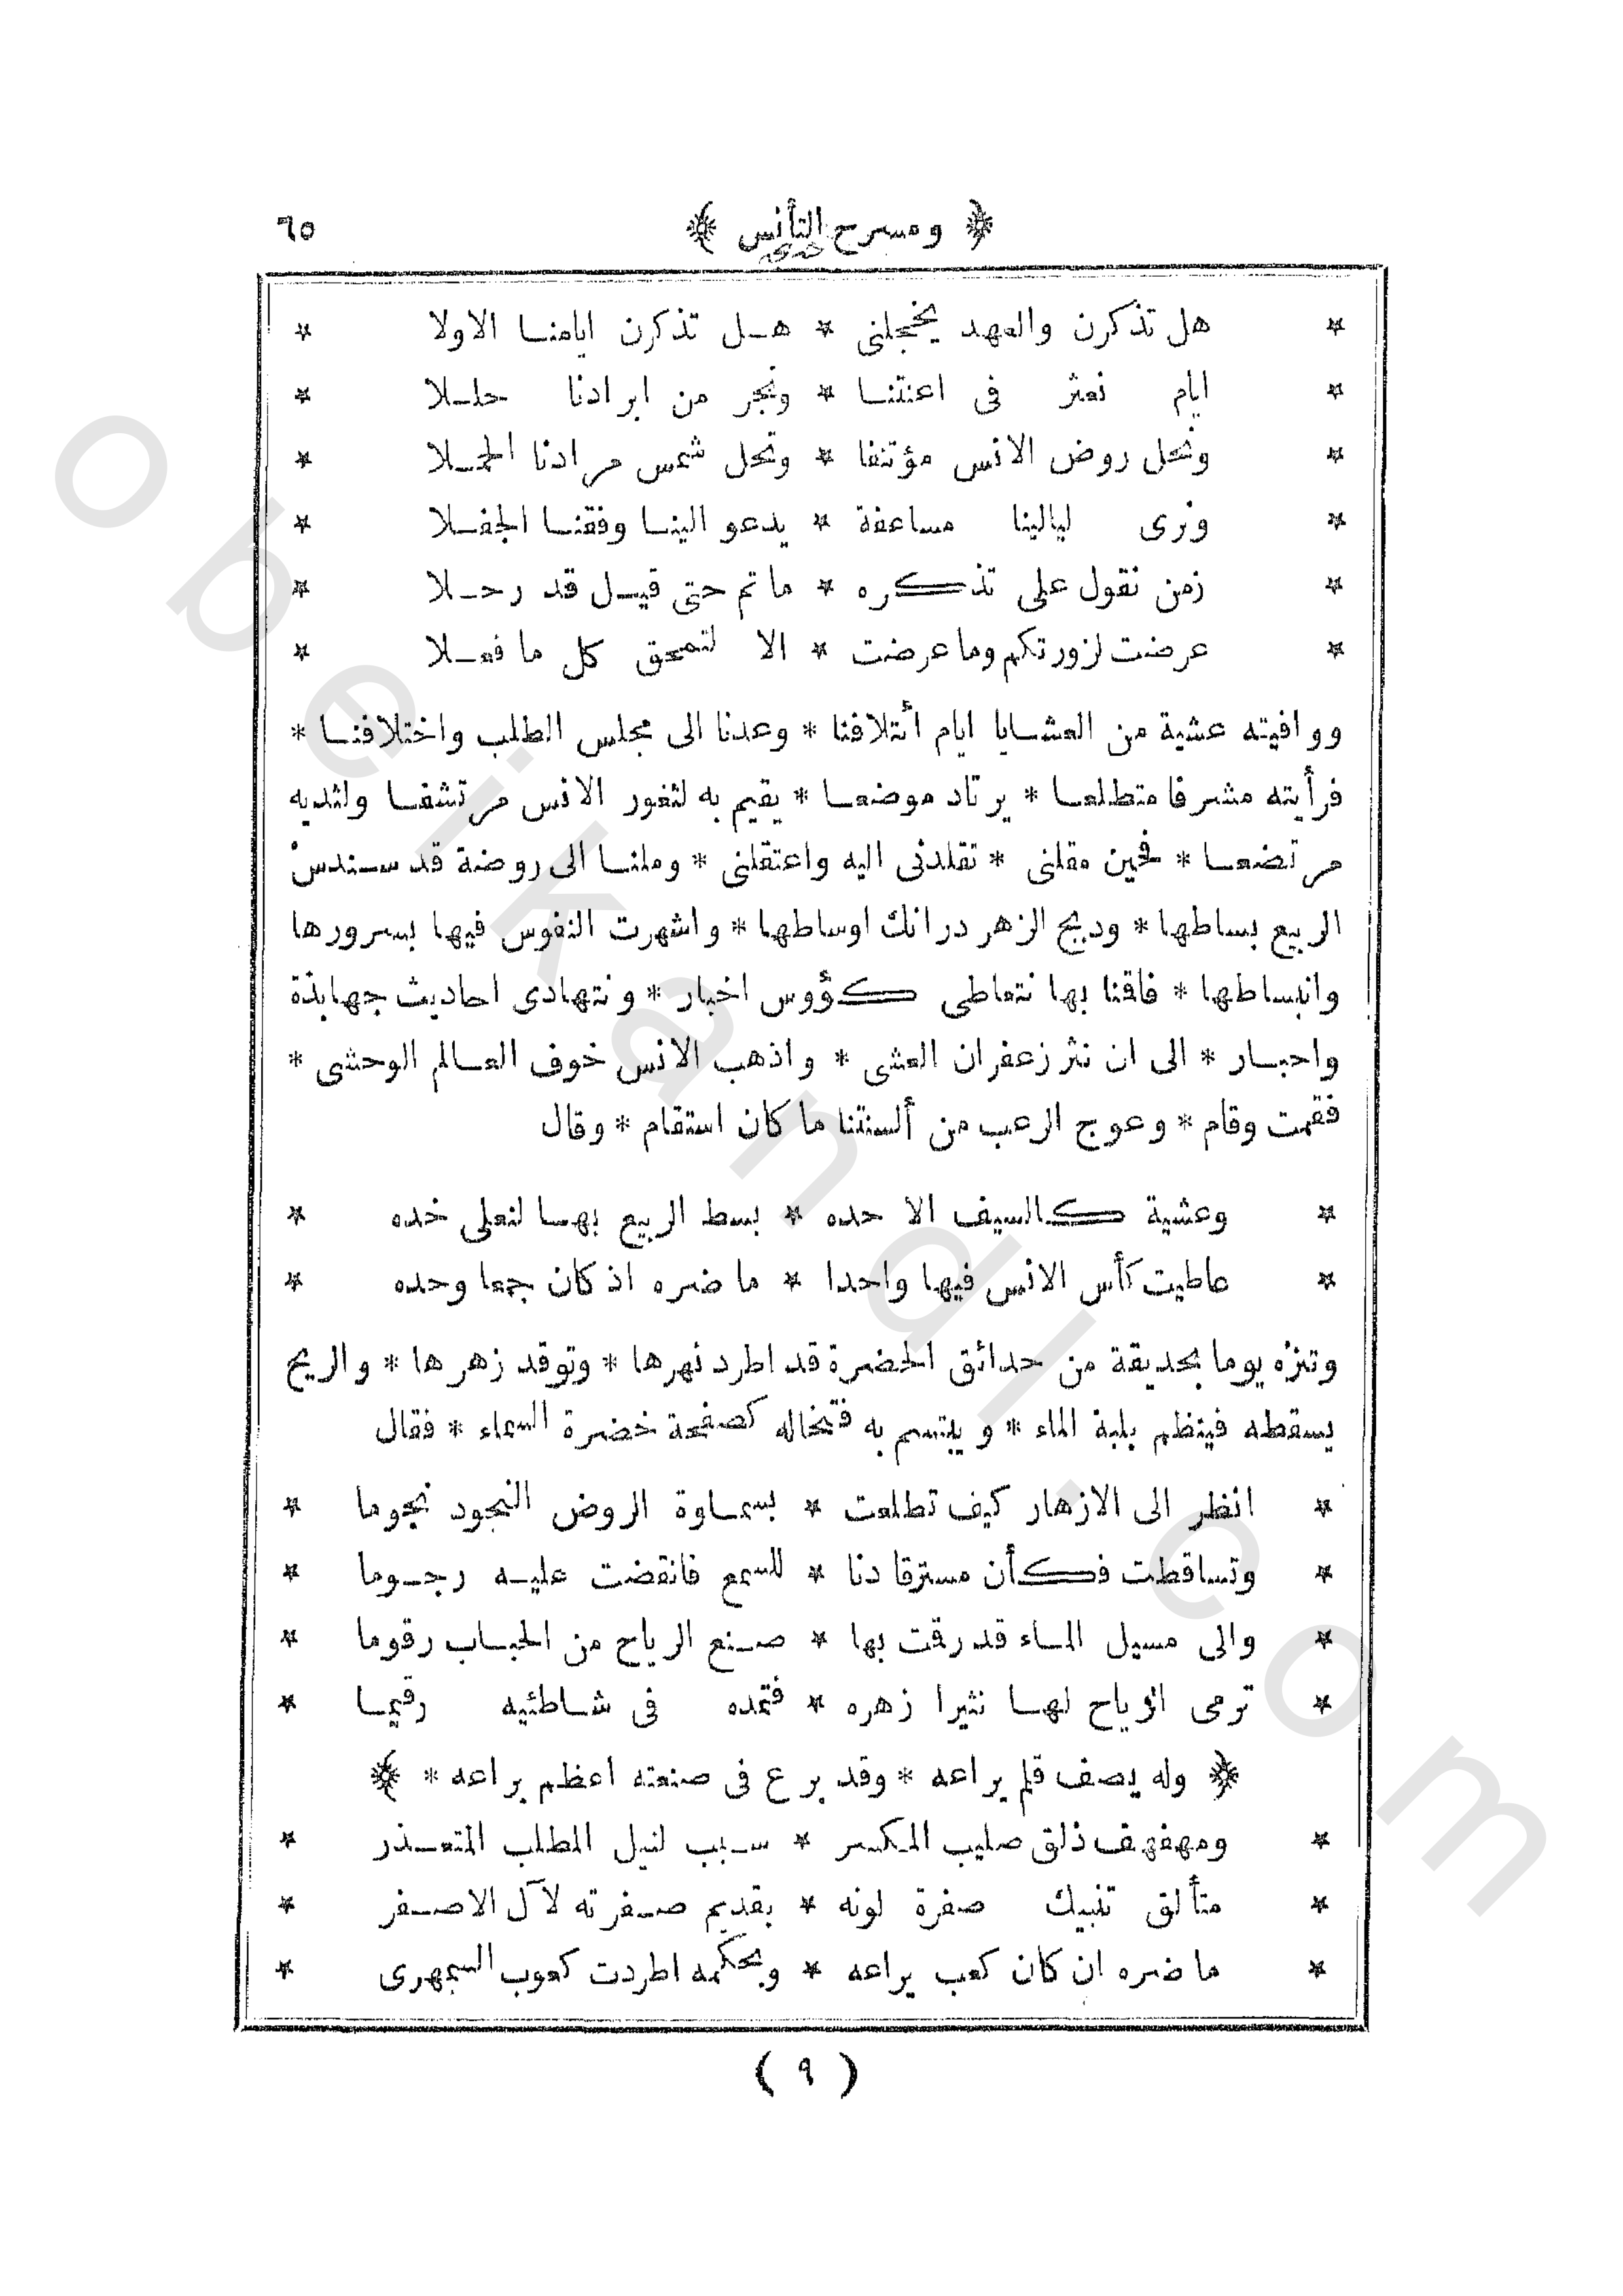 ﴿ ومسرح التأنس ﴾ ٦٥
* هل تذكرن والعهد يخجلنى * هل تذكرن ايامنا الاولا *
* ايام نعثر فى اعنتنا * ونجر من ابرادنا حللا *
* ونحل روض الانس مؤتنفا * وتحل شمس مرادنا الحملا *
* ونرى ليالينا مساعفة * يدعو الينا وفقنا الجفلا *
* زمن نقول على تذكره * ما تم حتى قيل قد رحلا *
* عرضت لزورتكم وما عرضت * الا لتمحق كل ما فعلا *
ووافيته عشية من العشايا ايام أئتلافنا * وعدنا الى مجلس الطلب واختلافنا *
فرأيته مشرفا متطلعا * يرتاد موضعا * يقيم به لثغور الانس مرتشفا ولثديه
مرتضعا * فحين مقلنى * تقلدنى اليه واعتقلنى * وملنا الى روضة قد سندس
الربيع بساطها * ودبج الزهر درانك اوساطها * واشهرت النفوس فيها بسرورها
وانبساطها * فاقنا بها نتعاطى كؤوس اخبار * ونتهادى احاديث جهابذة
واحبار * الى ان نثر زعفران العشى * واذهب الانس خوف العالم الوحشى *
فقمت وقام * وعوج الرعب من ألسنتنا ما كان استقام * وقال
* وعشية كالسيف الا حده * بسط الربيع بها لنعلى خده *
* عاطيت كأس الانس فيها واحدا * ما ضره اذ كان جمعا وحده *
وتنزه يوما بحديقة من حدائق الحضرة قد اطرد نهرها * وتوقد زهرها * والريح
يسقطه فينظم بلبة الماء * ويبتسم به فتخاله كصفحة خضرة السماء * فقال
* انظر الى الازهار كيف تطلعت * بسماوة الروض النجود نجوما *
* وتساقطت فكأن مسترقا دنا * للسمع فانقضت عليه رجوما *
* والى مسيل الماء قد رقت بها * صنع الرياح من الحباب رقوما *
* ترمى الرياح لها نثيرا زهره * فتمده فى شاطئيه رقيما *
﴿ وله يصف قلم يراعه * وقد برع فى صنعته اعظم براعه * ﴾
* ومهفهف ذلق صليب المكسر * سبب لنيل المطلب المتعذر *
* متألق تنبيك صفرة لونه * بقديم صفرته لآل الاصفر *
* ما ضره ان كان كعب يراعه * وبحكمه اطردت كعوب السمهرى *
( ٩ )
obeikandl.com